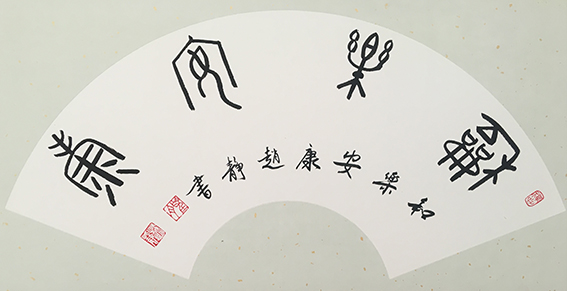 龢樂安康
和樂安康趙靜書